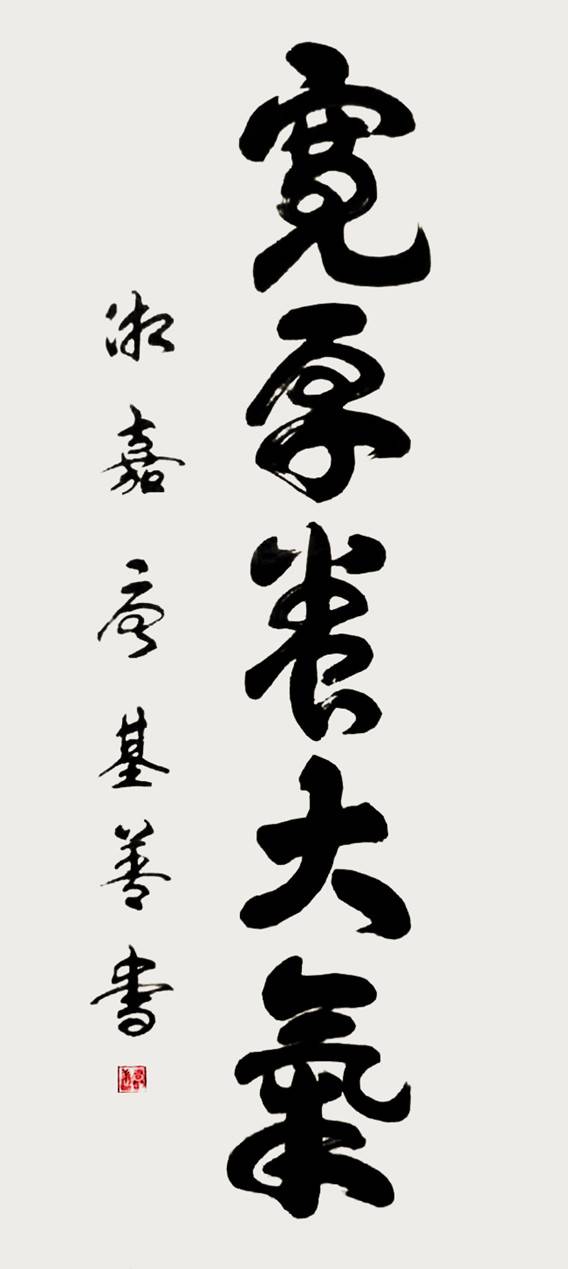 寬厚養大氣
湘嘉高基善書